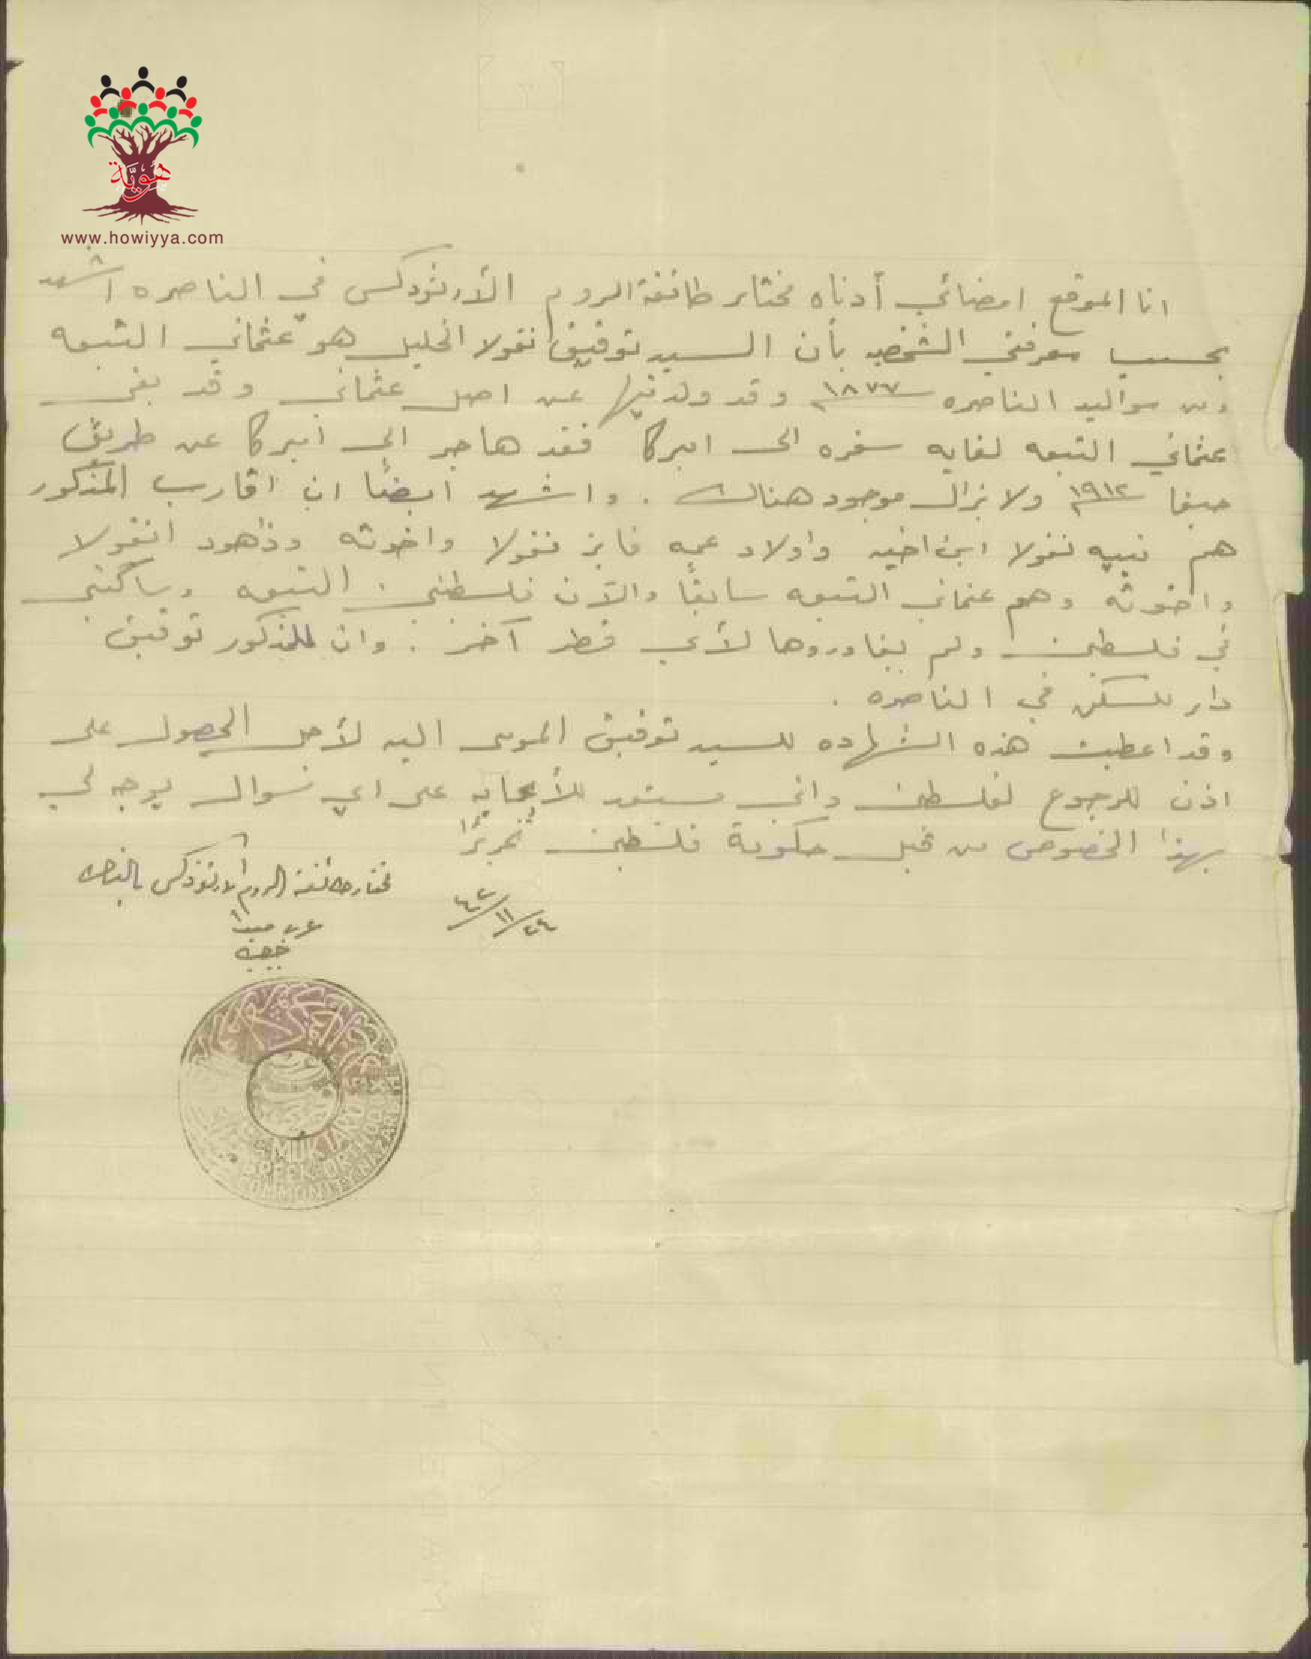 هوية
www.howiyya.com
انا الموقع امضائي أدناه مختار طائفة الروم الأرثوذكس في الناصره اشهد
بحسب معرفتي الشخصيه بأن السيد توفيق نقولا الخليل هو عثماني التبعه
ومن مواليد الناصره ١٨٧٧م وقد ولد فيها عن اصل عثماني وقد بقى
عثماني التبعه لغايه سفره الى اميركا فقد هاجر الى اميركا عن طريق
حيفا ١٩١٢م ولا يزال موجود هناك . واشهد ايضاً ان اقارب المذكور
هم نبيه نقولا ابن اخيه واولاد عمه فايز نقولا واخوته و انقولا
واخوته وهم عثماني التبعه سابقاً والآن فلسطيني التبعه وساكني
في فلسطين ولم يغادروها لأي قطر آخر . وان للمذكور توفيق
دار للسكن في الناصره .
وقد اعطيت هذه الشهاده للسيد توفيق المومى اليه لأجل الحصول على
اذن للرجوع لفلسطين واني مستعد للأجابه على اي سوال يوجه لي
بهذا الخصوص من قبل حكومة فلسطين تحريراً
٢٤/١١/٤٢
مختار طائفة الروم الارثوذكس بالناصره
MUKTAR OF
GREEK ORTHODOX
COMMUNITY NAZARETH